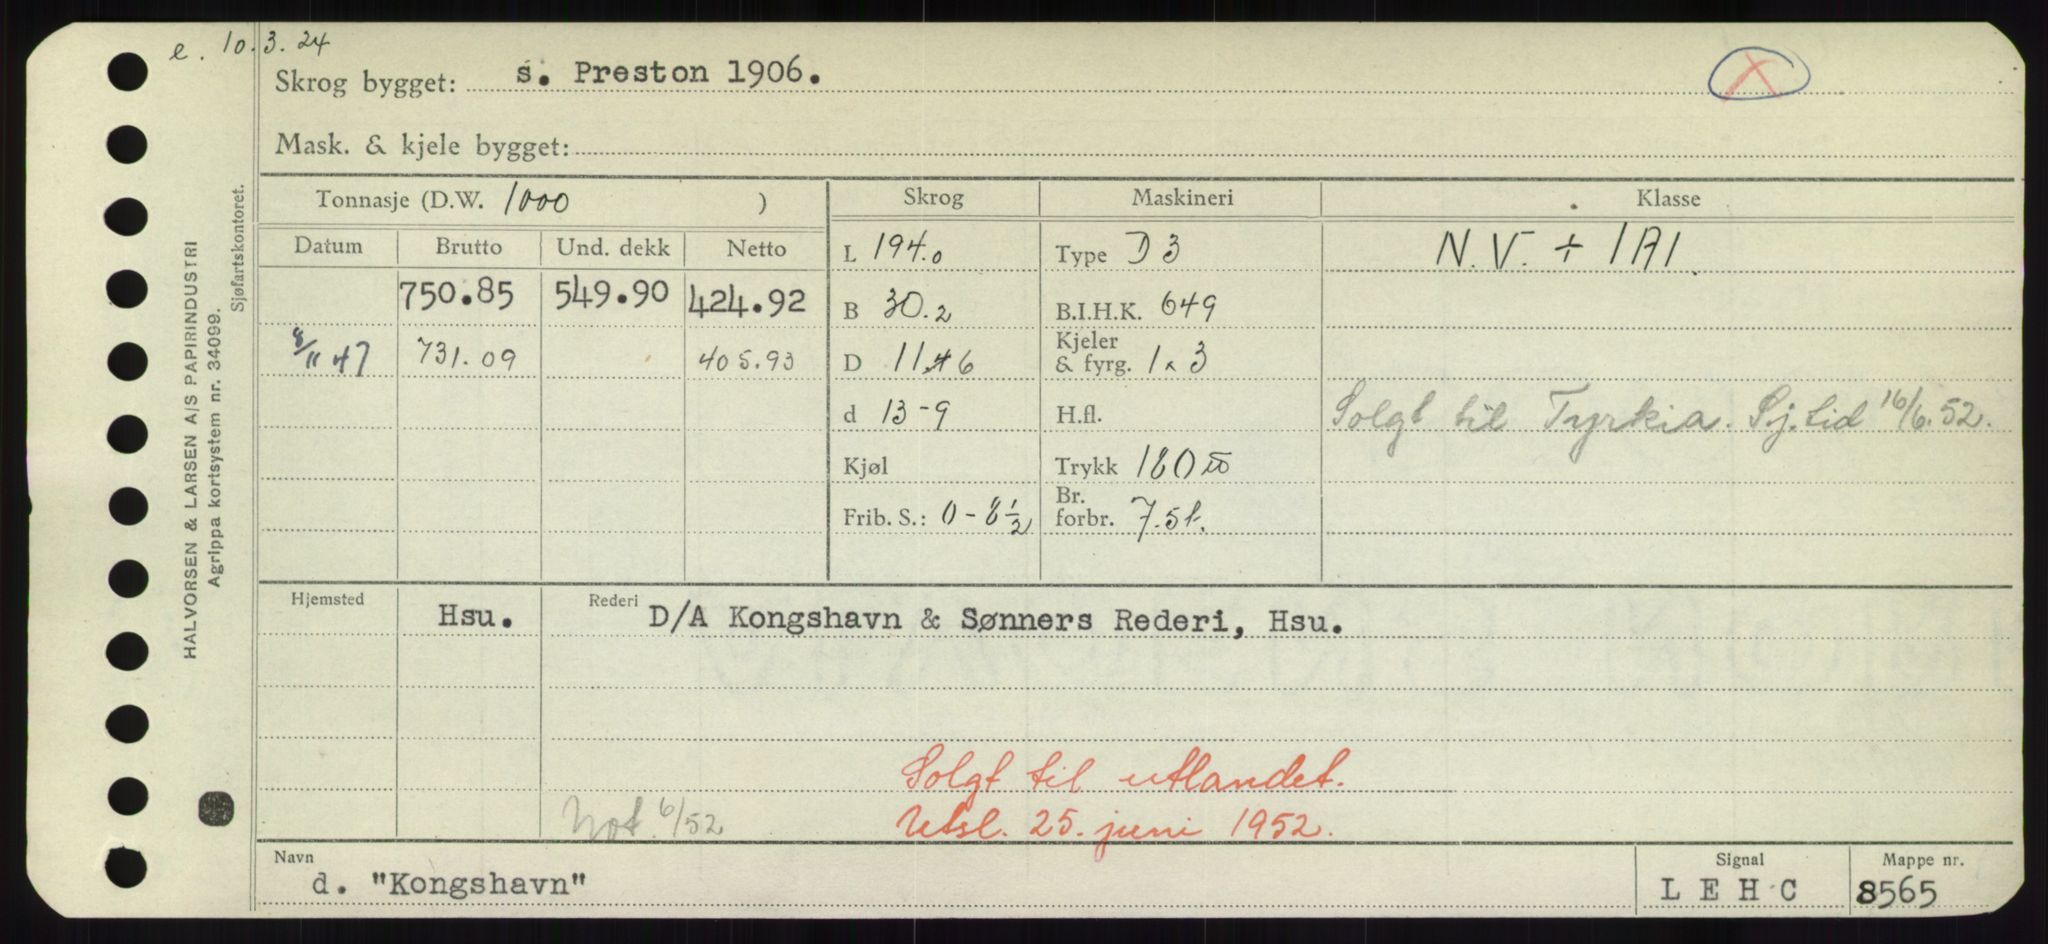 e. 10.3.24
Skrog bygget: s. Preston 1906.
X
Mask. & kjele bygget:
Tonnasje (D.W. 1000 )
Skrog
Maskineri
Klasse
Datum Brutto Und. dekk Netto
750.85 549.90 424.92
8/11 47 731.09 405.93
L 194.0
B 30.2
D 11.46
d 13-9
Kjøl
Frib. S.: 0-8½
Type D 3
B.I.H.K. 649
Kjeler
& fyrg. 1 x 3
H.fl.
Trykk 180 lb
Br.
forbr. 7.5 t.
N.V. + 1A1.
Solgt til Tyrkia. Sj.tid 16/6.52.
Hjemsted Hsu.
Rederi D/A Kongshavn & Sønners Rederi, Hsu.
Solgt til utlandet.
Not. 6/52
Utsl. 25. juni 1952.
Navn
d. "Kongshavn"
Signal
L E H C
Mappe nr.
8565
HALVORSEN & LARSEN A/S PAPIRINDUSTRI
Agrippa kortsystem nr. 34099.
Sjøfartskontoret.